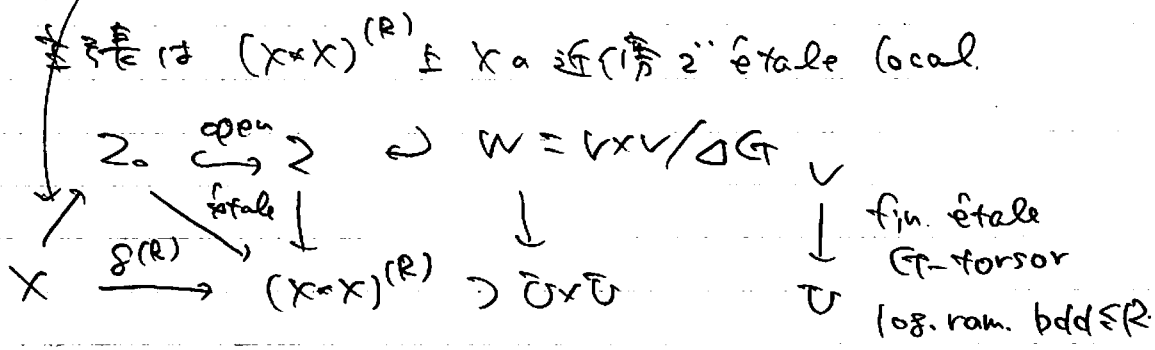 主張は (X*X)^(R) 上 X の近傍で étale local.
Z₀ open↪ Z ↩ W = V×V/ΔG V
étale ↓ ↓ ↓ fin. étale
G-torsor
X δ^(R)→ (X*X)^(R) ⊃ U×U U
log. ram. bdd ≤ R.